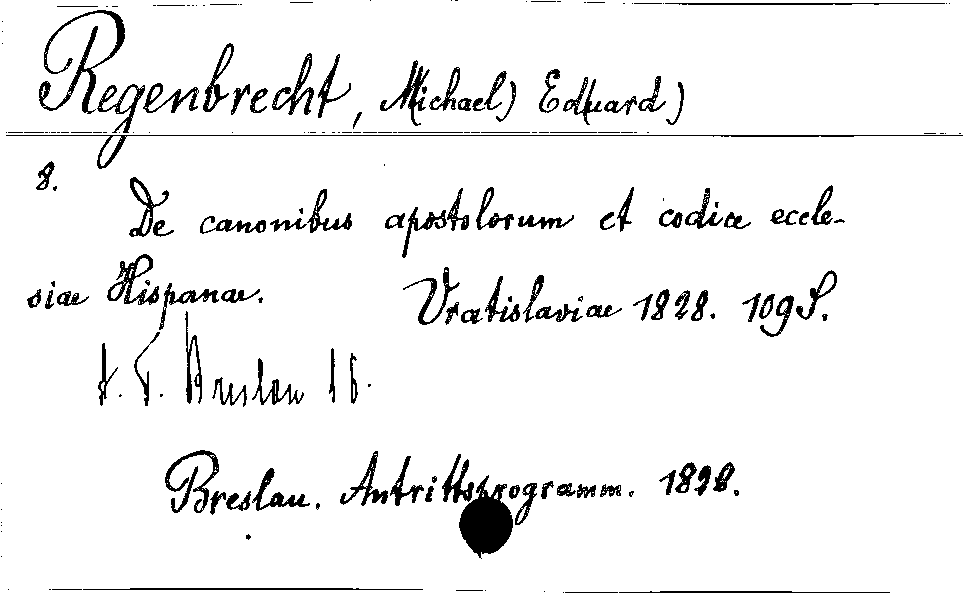 Regenbrecht, Michael) Eduard)
8.
De canonibus apostolorum et codice eccle-
siae Hispanae. Vratislaviae 1828. 109 S.
Breslau 16.
Breslau. Antrittsprogramm. 1828.